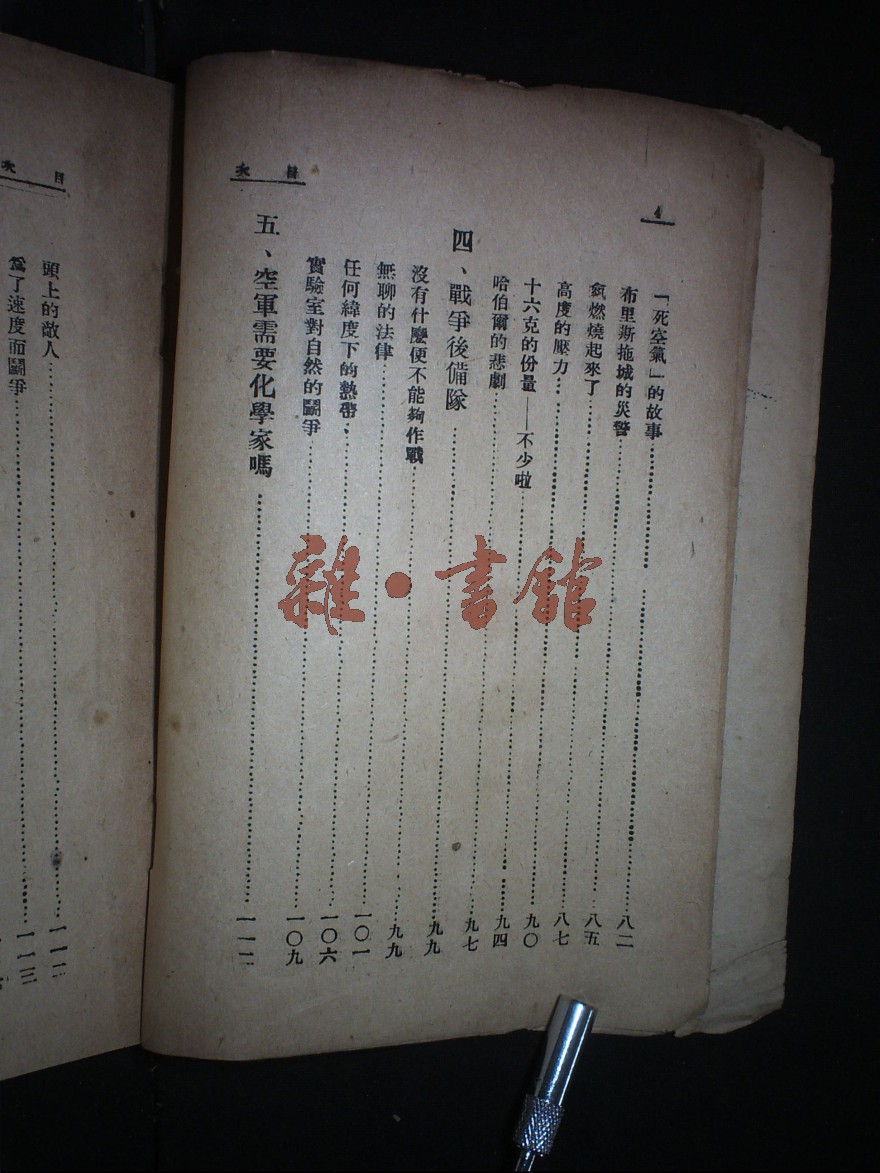 4
目次
「死空氣」的故事……八二
布里斯拖城的災警……八五
氮燃燒起來了……八七
高度的壓力……九〇
十六克的份量——不少啦……九四
哈伯爾的悲劇……九七
四、戰爭後備隊……九九
沒有什麼便不能夠作戰……九九
無聊的法律……一〇一
任何緯度下的熱帶……一〇六
實驗室對自然的鬪爭……一〇九
五、空軍需要化學家嗎……一一一
目次
頭上的敵人……一一一
爲了速度而鬪爭……一一三
雜·書館